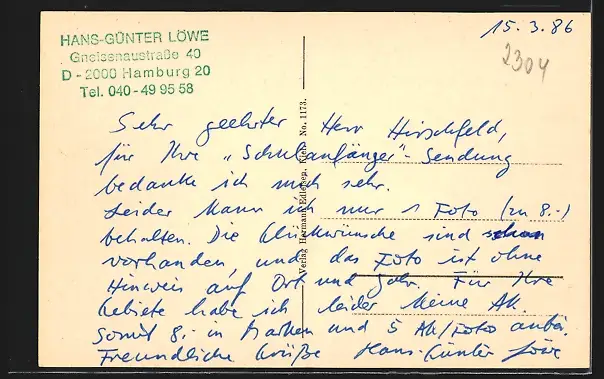 HANS-GÜNTER LÖWE
Gneisenaustraße 40
D - 2000 Hamburg 20
Tel. 040 - 49 95 58
15.3.86
2304
Sehr geehrter Herr Hirschfeld,
für Ihre „Schulanfänger"-Sendung
bedanke ich mich sehr.
Leider kann ich nur 1 Foto (zu 8.-)
behalten. Die Glückwünsche sind schon
vorhanden, und das Foto ist ohne
Hinweis auf Ort und Jahr. Für Ihre
Gebiete habe ich leider keine AK.
Somit 8.- in Marken und 5 AK/Foto anbei.
Freundliche Grüße Hans-Günter Löwe
Verlag Hermann Edlefsen, Kiel. No. 1173.